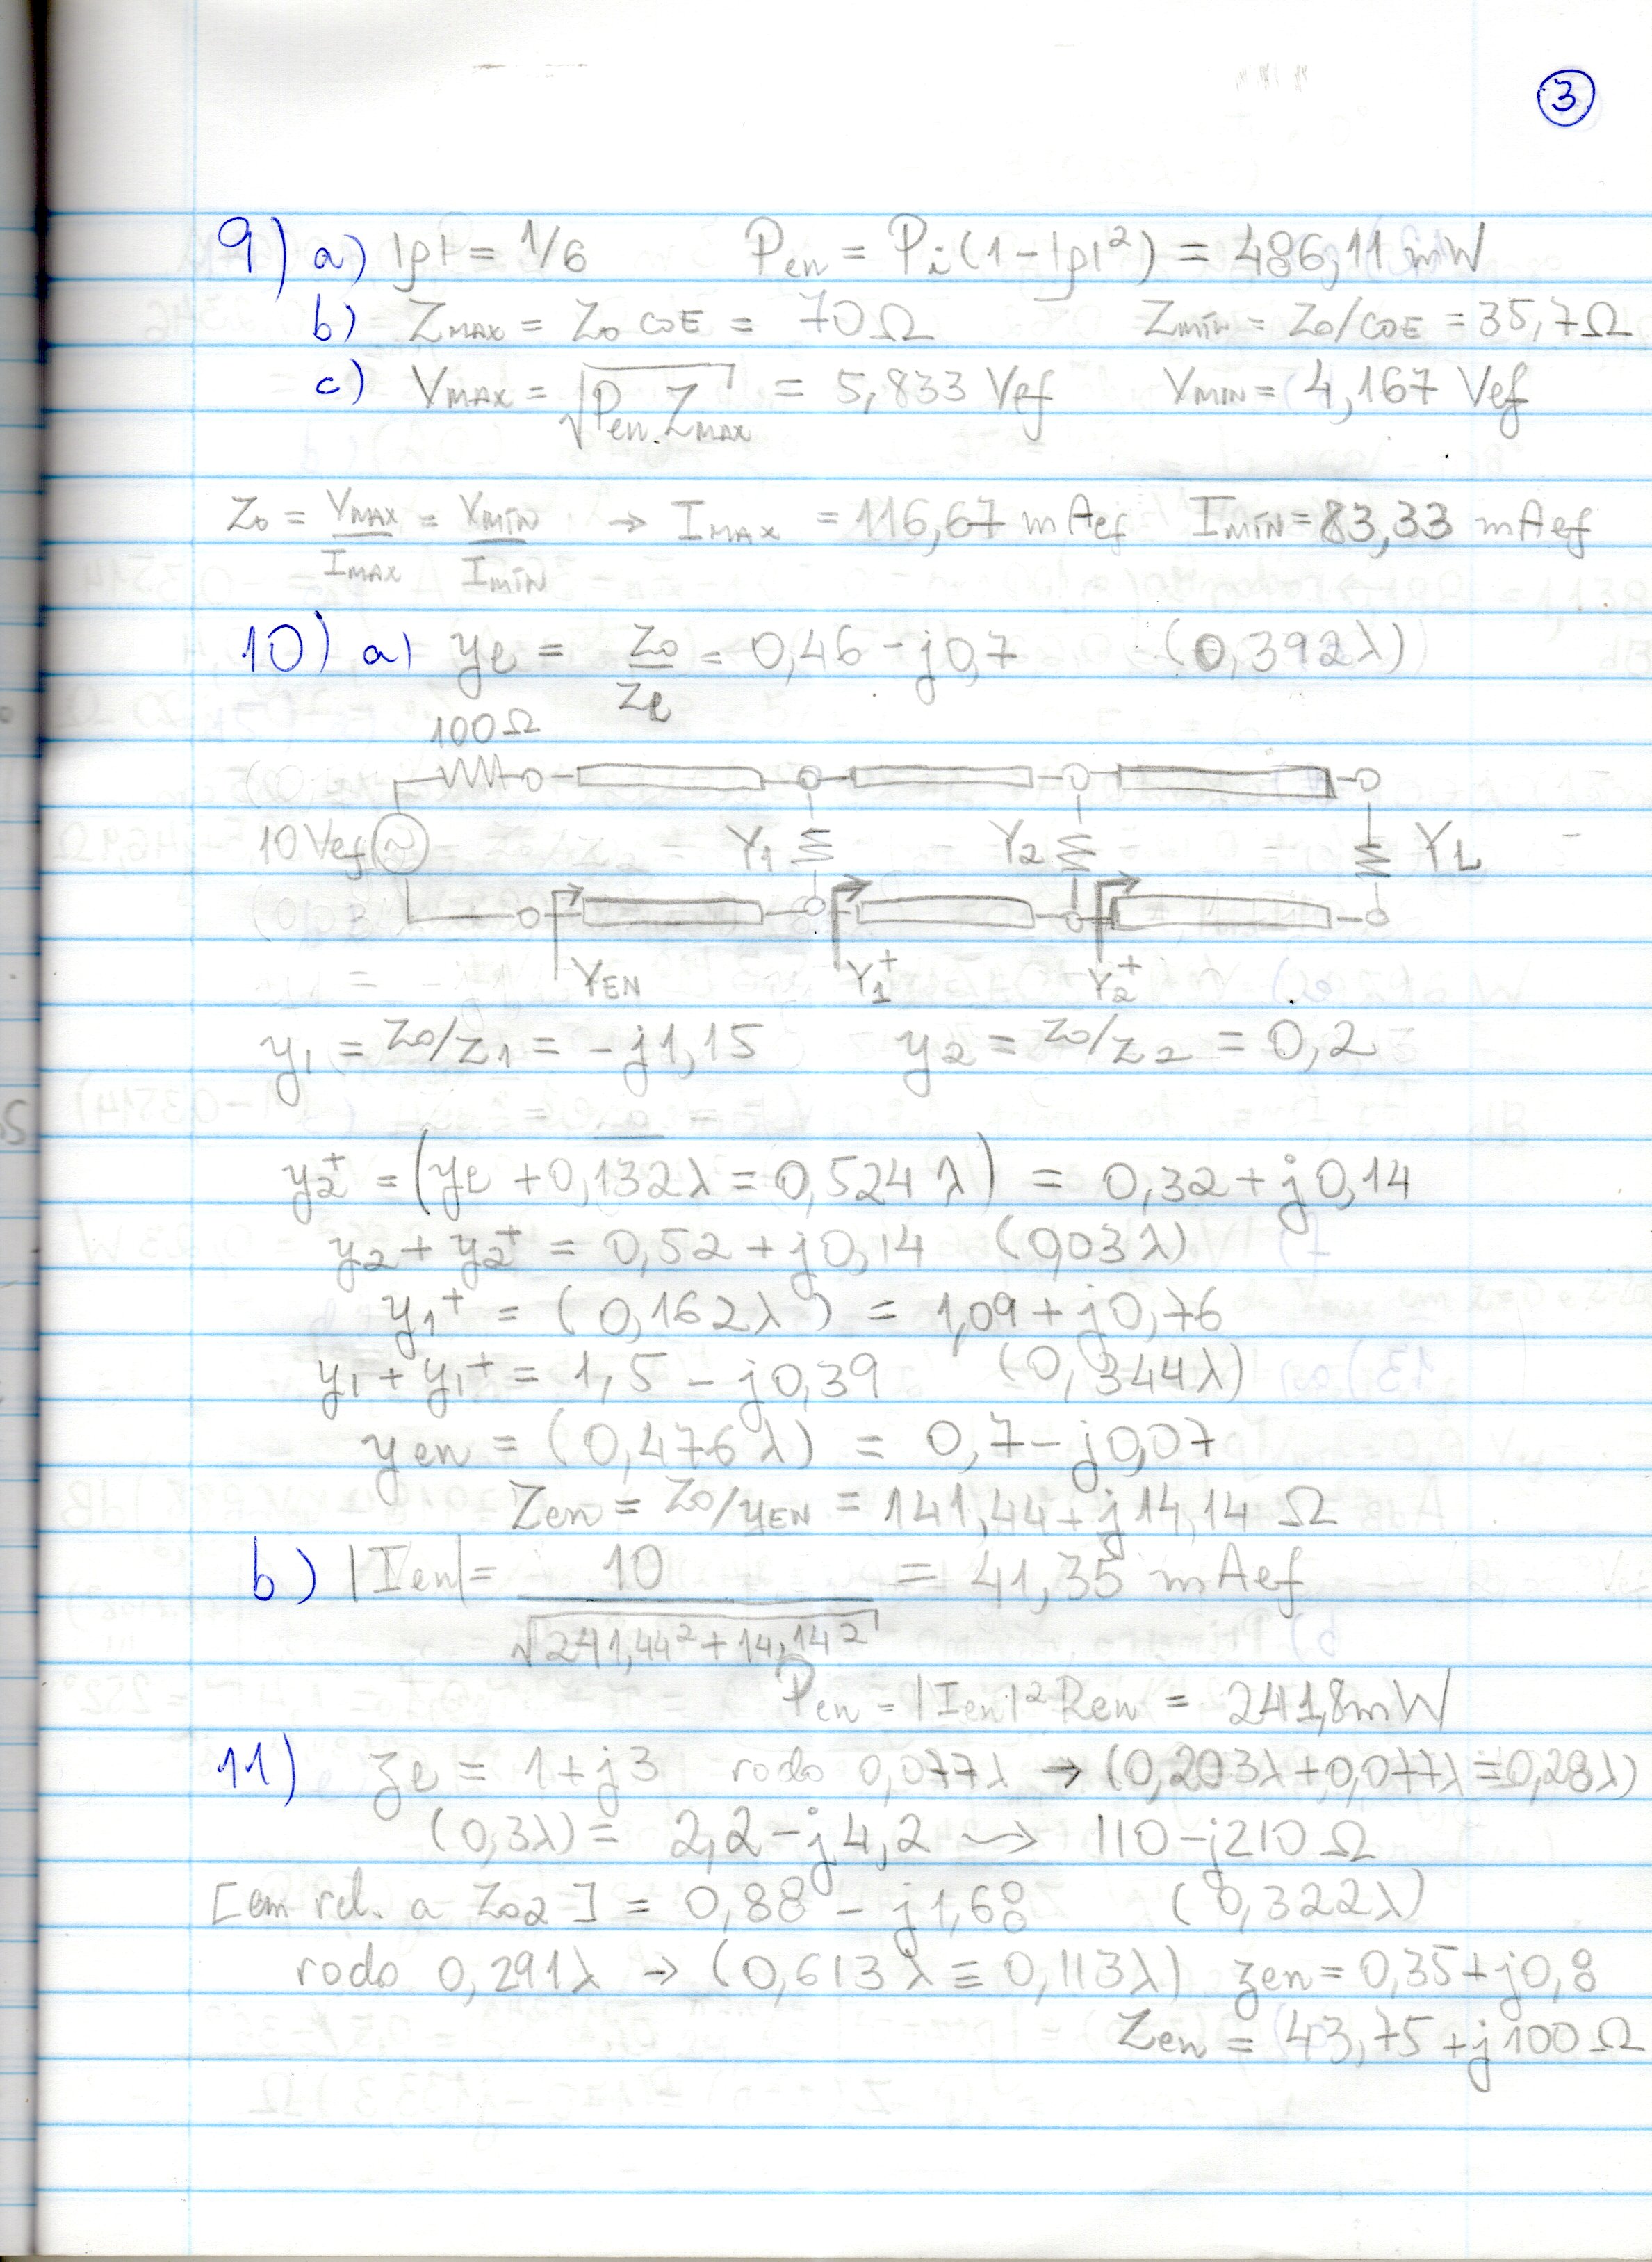 3
9) a) |ρ| = 1/6 Pen = Pi(1-|ρ|²) = 486,11 mW
b) ZMAX = Z0 COE = 70Ω ZMÍN = Z0/COE = 35,7Ω
c) VMAX = √Pen.ZMAX = 5,833 Vef VMIN = 4,167 Vef
Z0 = VMAX/IMAX = VMÍN/IMÍN → IMAX = 116,67 mAef IMÍN = 83,33 mAef
10) a) yl = Z0/Zl = 0,46 - j0,7 (0,392λ)
100Ω
10 Vef Y1 Y2 YL
YEN Y1+ Y2+
y1 = Z0/Z1 = -j1,15 y2 = Z0/Z2 = 0,2
y2+ = (yl + 0,132λ = 0,524λ) = 0,32 + j0,14
y2 + y2+ = 0,52 + j0,14 (0,03λ)
y1+ = (0,162λ) = 1,09 + j0,76
y1 + y1+ = 1,5 - j0,39 (0,344λ)
yen = (0,476λ) = 0,7 - j0,07
Zen = Z0/yEN = 141,44 + j14,14 Ω
b) |Ien| = 10/√241,44² + 14,14² = 41,35 mAef
Pen = |Ien|² Ren = 241,8mW
11) zl = 1 + j3 rodo 0,077λ → (0,203λ + 0,077λ = 0,28λ)
(0,3λ) = 2,2 - j4,2 → 110 - j210Ω
[em rel. a Z02] = 0,88 - j1,68 (0,322λ)
rodo 0,291λ → (0,613λ ≡ 0,113λ) zen = 0,35 + j0,8
Zen = 43,75 + j100Ω